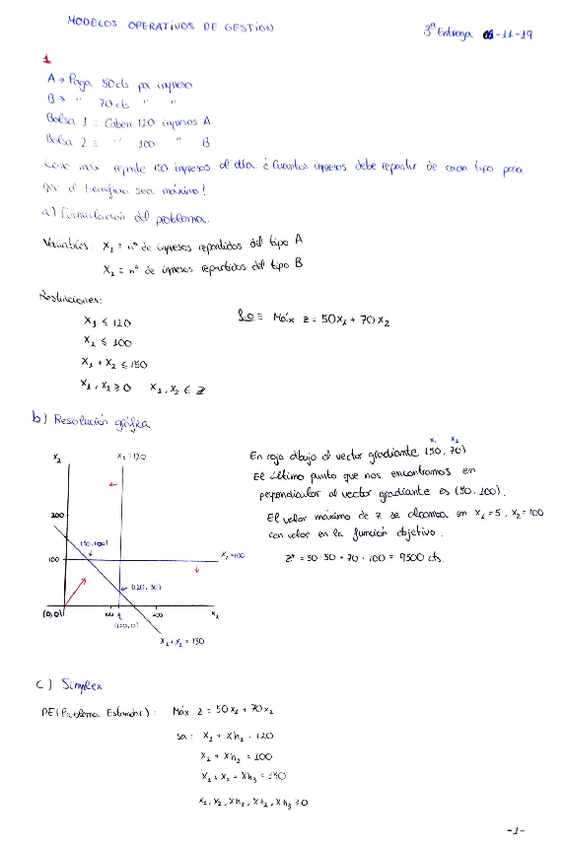 MODELOS OPERATIVOS DE GESTION
3ª Entrega 06-11-19
1
A → Paga 50cts por impreso
B → " 70 cts " "
Bolsa 1 = Caben 120 impresos A
Bolsa 2 = " 100 " B
Como max reparte 150 impresos al día ¿Cuantos impresos debe repartir de cada tipo para
que el beneficio sea máximo?
a) Formulación del problema.
Variables: X₁ = nº de impresos repartidos del tipo A
X₂ = nº de impresos repartidos del tipo B
Restricciones:
X₁ ≤ 120
X₂ ≤ 100
X₁ + X₂ ≤ 150
X₁, X₂ ≥ 0 X₁, X₂ ∈ Z
Máx Z = 50X₁ + 70X₂
b) Resolución gráfica
En rojo dibujo el vector gradiante (50, 70)
El último punto que nos encontramos en
perpendicular al vector gradiante es (50, 100).
El valor máximo de Z se alcanza en X₁=5, X₂=100
con valor en la función objetivo.
Z* = 50·50 + 70·100 = 9500 cts.
X₂
X₁=120
200
(50,100)
100
X₂=100
(120, 30)
(0,0)
100
200
X₁
(120,0)
X₁+X₂ = 150
c) Simplex
PE (Problema Estandar): Máx Z = 50X₁ + 70X₂
sa: X₁ + Xh₁ = 120
X₂ + Xh₂ = 100
X₁ + X₂ + Xh₃ = 150
X₁, X₂, Xh₁, Xh₂, Xh₃ ≥ 0
-1-